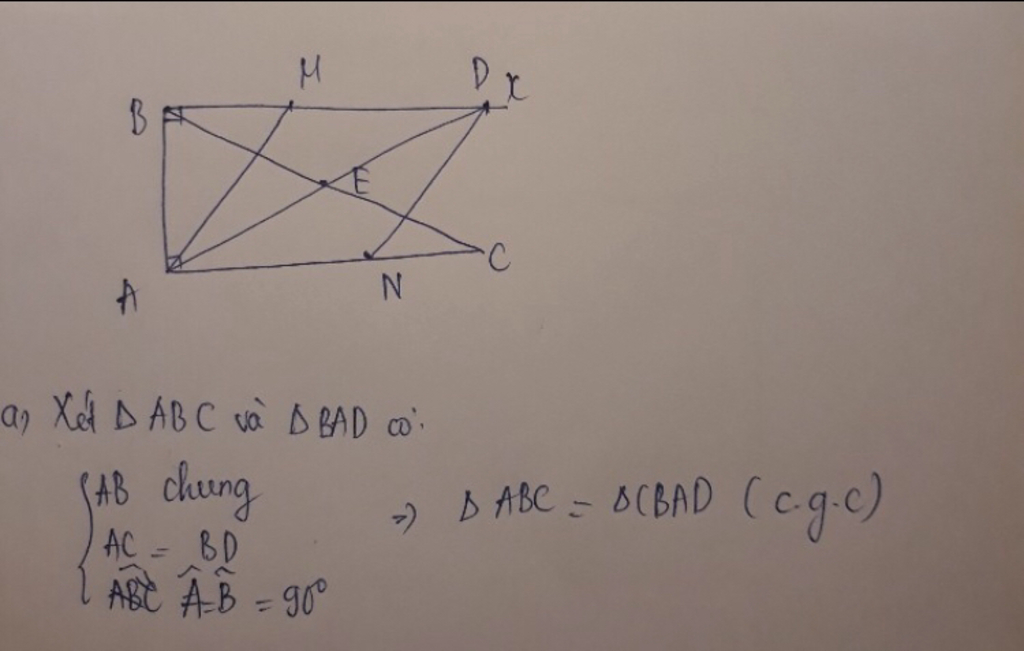 M D x
B
E
C
A N
a, Xét Δ ABC và Δ BAD có:
AB chung
AC = BD
Â = B̂ = 90°
=> Δ ABC = ΔCBAD (c.g.c)